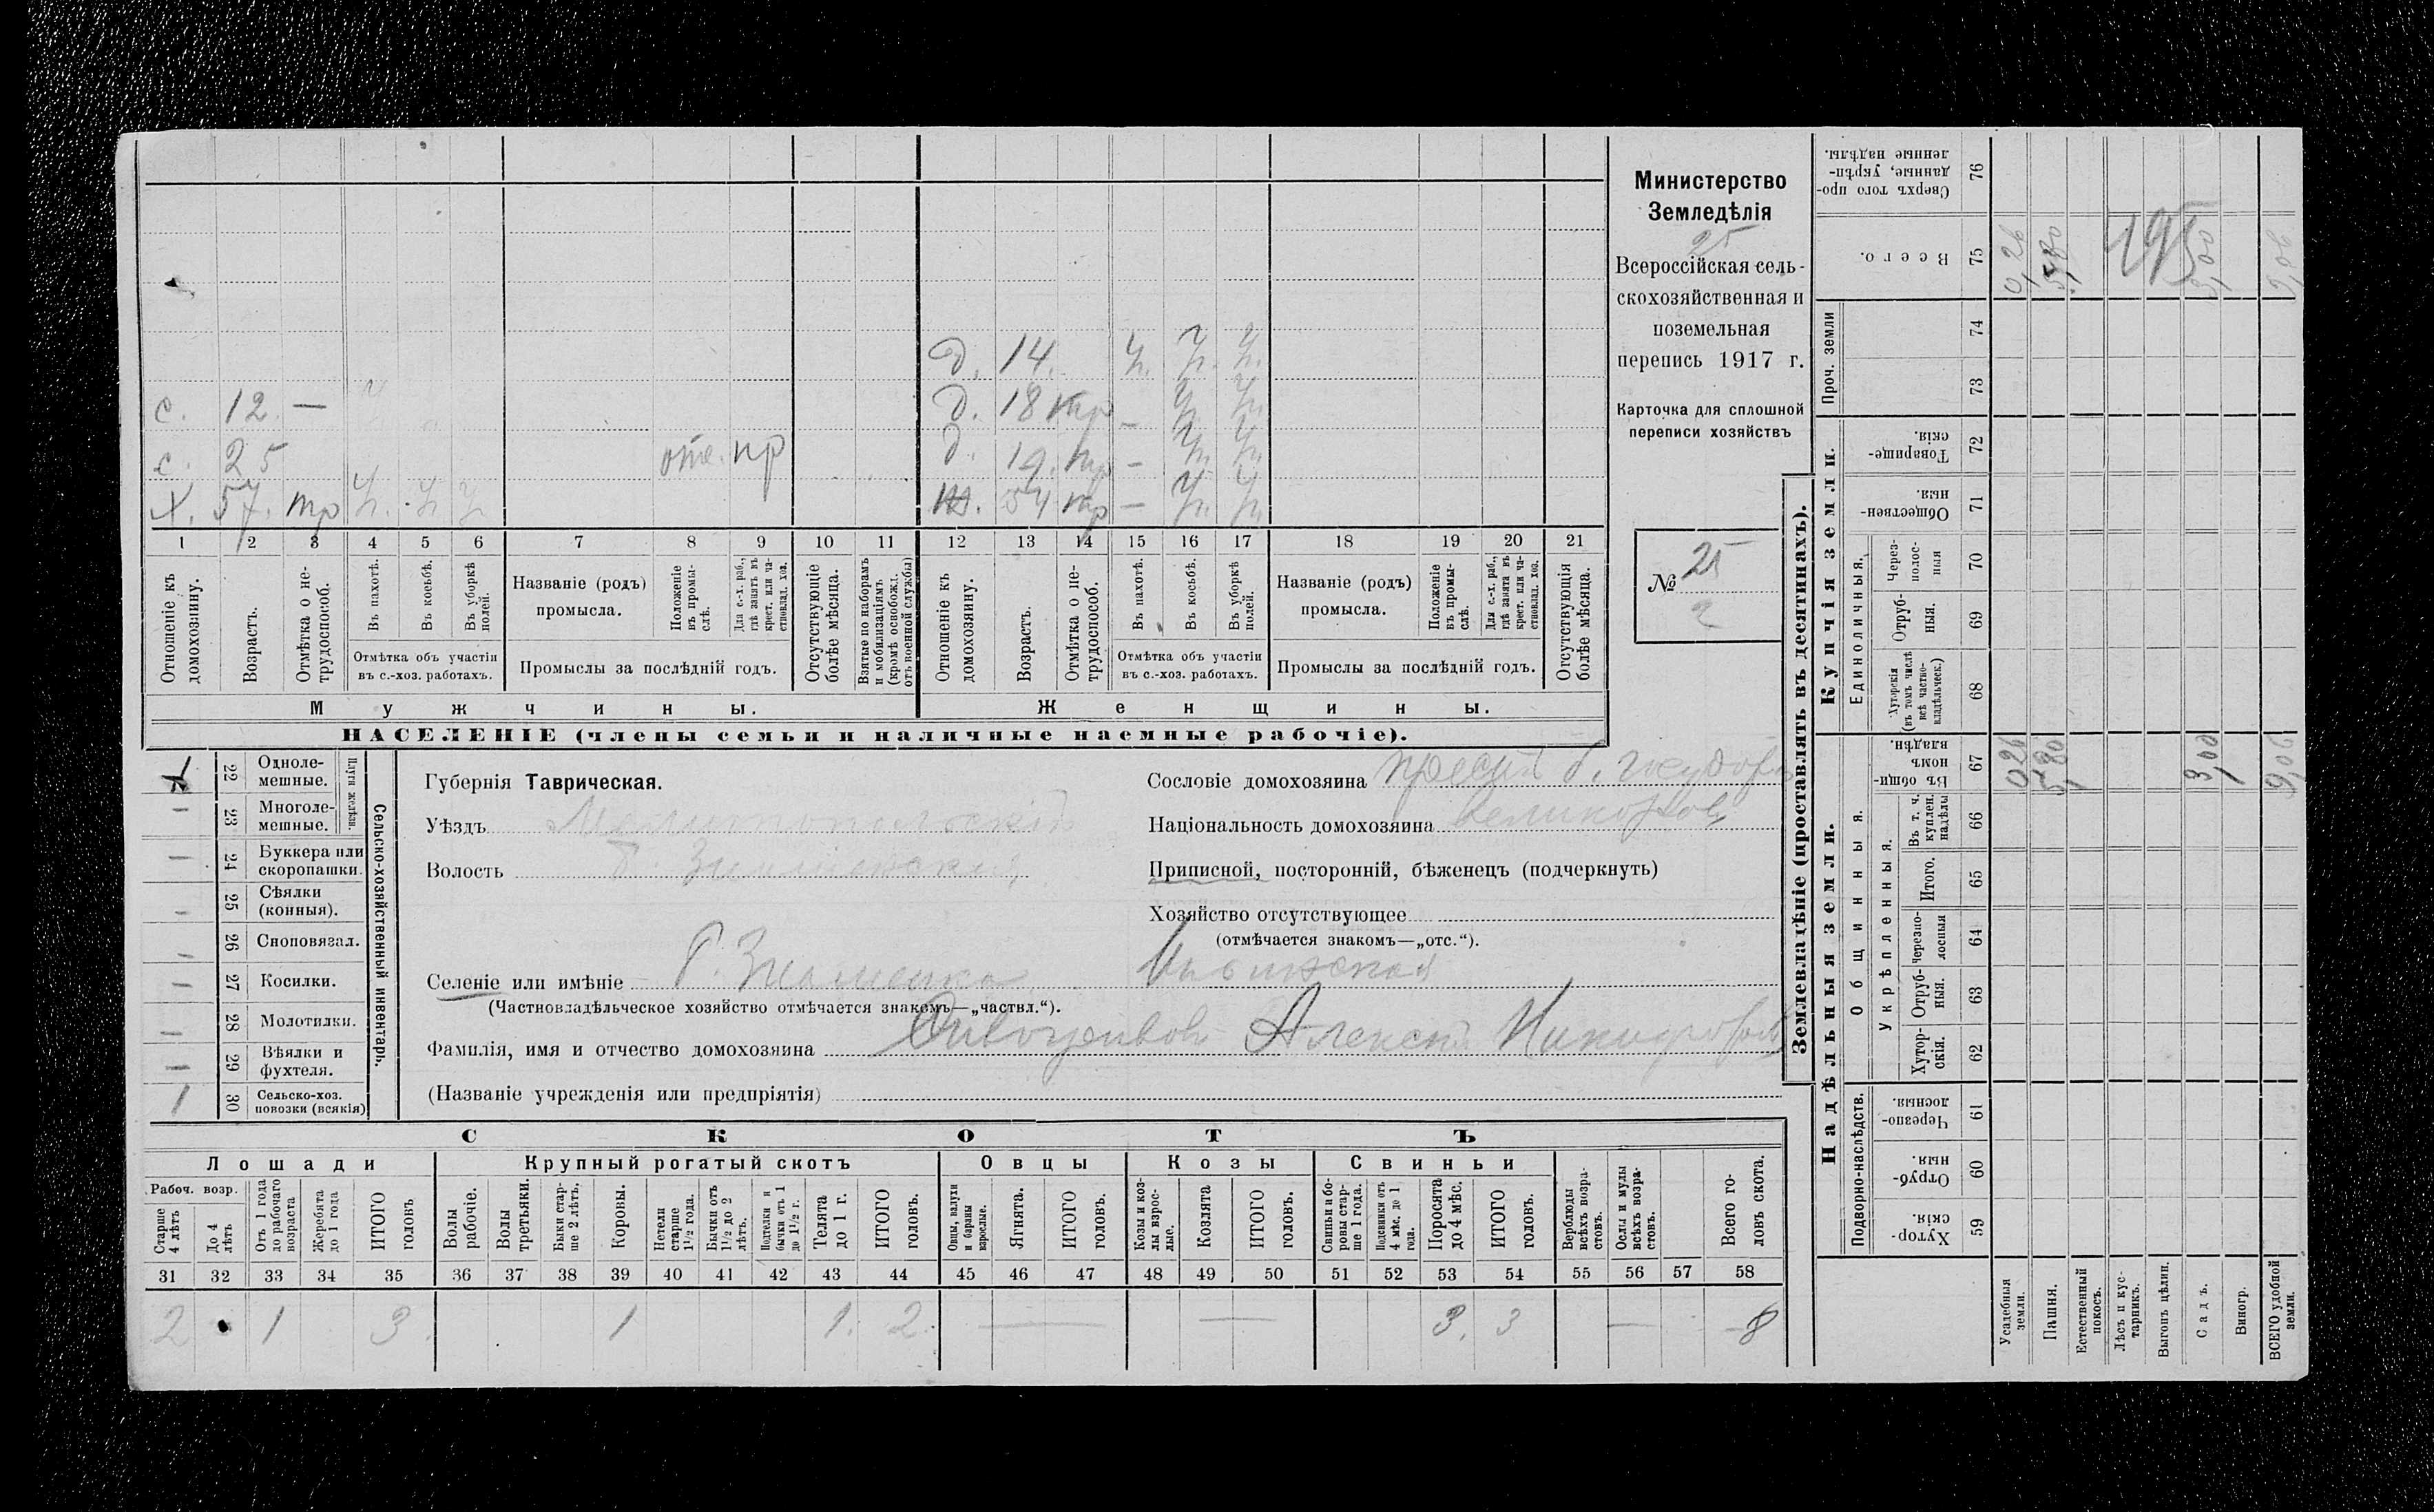 Министерство
Земледѣлія
25
Всероссійская сель-
скохозяйственная и
поземельная
перепись 1917 г.
Карточка для сплошной
переписи хозяйствъ
№ 25
2
д. 14. ч. ч. ч.
с. 12. — д. 18 тр — ч. ч.
с. 25 отс. пр д. 19. тр — ч. ч.
х. 57. тр ч. ч ч 54 тр — ч. ч.
1 2 3 4 5 6 7 8 9 10 11 12 13 14 15 16 17 18 19 20 21
Отношеніе къ домохозяину.
Возрастъ.
Отмѣтка о не-трудоспособ.
Въ пахотѣ.
Въ косьбѣ.
Въ уборкѣ полей.
Отмѣтка объ участіи въ с.-хоз. работахъ.
Названіе (родъ) промысла.
Положеніе въ промы-слѣ.
Для с.-х. раб., гдѣ занятъ въ крест. или ча-стновлад. хоз.
Промыслы за послѣдній годъ.
Отсутствующіе болѣе мѣсяца.
Взятые по наборамъ и мобилизаціямъ (кромѣ освобожд. отъ военной службы)
Отношеніе къ домохозяину.
Возрастъ.
Отмѣтка о не-трудоспособ.
Въ пахотѣ.
Въ косьбѣ.
Въ уборкѣ полей.
Отмѣтка объ участіи въ с.-хоз. работахъ.
Названіе (родъ) промысла.
Положеніе въ промы-слѣ.
Для с.-х. раб., гдѣ занята въ крест. или ча-стновлад. хоз.
Промыслы за послѣдній годъ.
Отсутствующія болѣе мѣсяца.
Мужчины. Женщины.
НАСЕЛЕНІЕ (члены семьи и наличные наемные рабочіе).
22 Одноле-мешные.
— 23 Многоле-мешные.
Плуги желѣзн.
— 24 Буккера или скоропашки.
— 25 Сѣялки (конныя).
— 26 Сноповязал.
— 27 Косилки.
— 28 Молотилки.
— 29 Вѣялки и фухтеля.
1 30 Сельско-хоз. повозки (всякія)
Сельско-хозяйственный инвентарь.
Губернія Таврическая.
Уѣздъ Мелитопольскій
Волость Б. Знаменская
Селеніе или имѣніе Б. Знаменка
(Частновладѣльческое хозяйство отмѣчается знакомъ—„частвл.“).
Фамилія, имя и отчество домохозяина Алексѣй Никифоров
(Названіе учрежденія или предпріятія)
Сословіе домохозяина
Національность домохозяина великорос
Приписной, посторонній, бѣженецъ (подчеркнуть)
Хозяйство отсутствующее
(отмѣчается знакомъ—„отс.“).
СКОТЪ
Лошади Крупный рогатый скотъ Овцы Козы Свиньи
Рабоч. возр.
Старше 4 лѣтъ
До 4 лѣтъ
Отъ 1 года до рабочаго возраста
Жеребята до 1 года
ИТОГО головъ
Волы рабочіе.
Волы третьяки.
Быки стар-ше 2 лѣтъ.
Коровы.
Нетели старше 1½ года.
Бычки отъ 1½ до 2 лѣтъ.
Подтелки и бычки отъ 1 до 1½ г.
Телята до 1 г.
ИТОГО головъ.
Овцы, валухи и бараны взрослые.
Ягнята.
ИТОГО головъ.
Козы и коз-лы взрос-лые.
Козлята
ИТОГО головъ.
Свиньи и бо-ровы стар-ше 1 года.
Подсвинки отъ 4 мѣс. до 1 года.
Поросята до 4 мѣс.
ИТОГО головъ.
Верблюды всѣхъ возра-стовъ.
Ослы и мулы всѣхъ возра-стовъ.
Всего го-ловъ скота.
31 32 33 34 35 36 37 38 39 40 41 42 43 44 45 46 47 48 49 50 51 52 53 54 55 56 57 58
2 1 3. 1 1. 2. — — 3. 3 — 8
Землевладѣніе (проставлять въ десятинахъ).
Надѣльныя земли. Купчія земли.
Подворно-наслѣдств.
Общинныя.
Укрѣпленныя.
Единоличныя.
Проч. земли
Хутор-скія. 59
Отруб-ныя. 60
Черезпо-лосныя. 61
Хутор-скія. 62
Отруб-ныя. 63
Черезпо-лосныя 64
Итого. 65
Въ т. ч. куплен. надѣлы 66
Въ общин-номъ владѣн. 67
Хуторскія (въ томъ числѣ всѣ частно-владѣльческ.) 68
Отруб-ныя. 69
Через-полос-ныя 70
Обществен-ныя. 71
Товарище-скія. 72
73
74
Всего. 75
Сверхъ того про-данные, укрѣп-ленные надѣлы. 76
Усадебныя земли. 0,26 0,26
Пашня. 5,80 5,80
Естественный покосъ.
Лѣсъ и кус-тарникъ.
Выгонъ цѣлин.
Садъ. 3,00 3,00
Виногр.
ВСЕГО удобной земли. 9,06 9,06
195